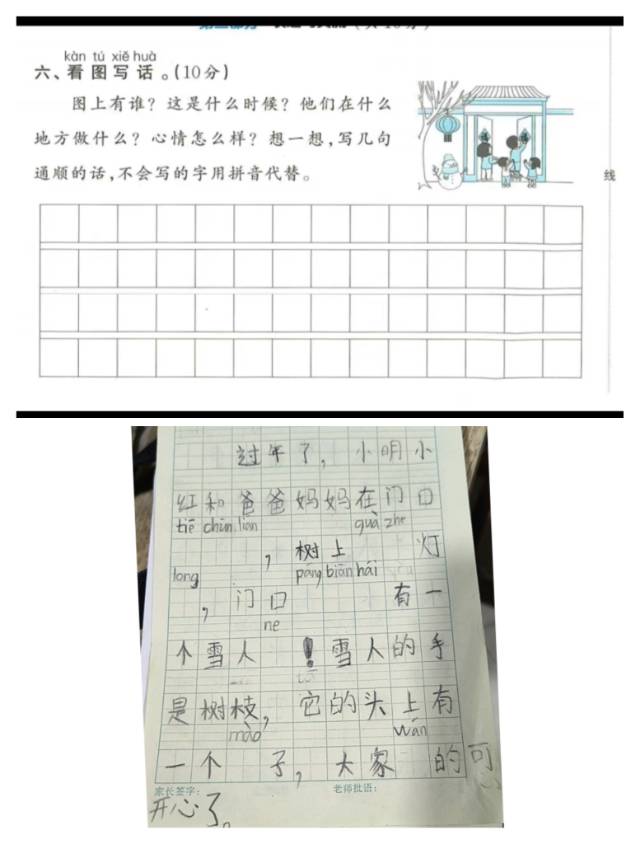 kàn tú xiě huà
六、看图写话。(10分)
图上有谁？这是什么时候？他们在什么
地方做什么？心情怎么样？想一想,写几句
通顺的话,不会写的字用拼音代替。
线
过年了，小明小
红和爸爸妈妈在门口
tiē chūn lián guà zhe
，树上 灯
long páng biān hái
，门口 有一
ne
个雪人！雪人的手
是树枝，它的头上有
mào wán
一个 子，大家 的可
家长签字： 老师批语：
开心了。